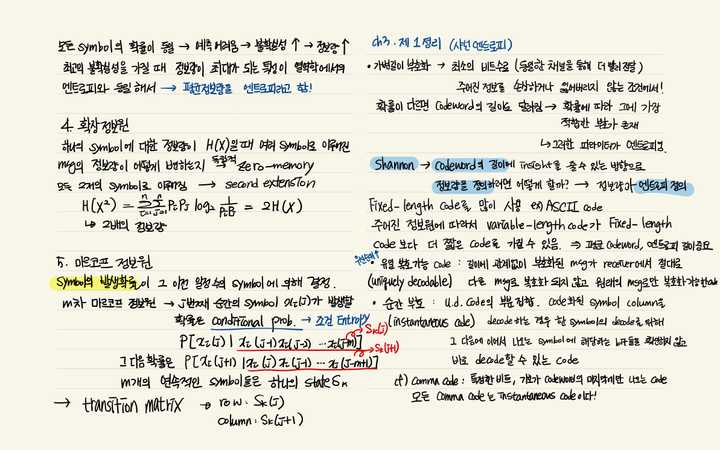 모든 symbol의 확률이 동일 → 예측 어려움 → 불확실성 ↑ → 정보량 ↑
최고의 불확실성을 가질 때 정보량이 최대가 되는 특성이 열역학에서의
엔트로피와 동일해서 → 평균정보량을 엔트로피라고 함!
4. 확장 정보원
하나의 symbol에 대한 정보량이 H(X)일 때 여러 symbol로 이루어진
msg의 정보량이 어떻게 변하는지 독립적 zero-memory
모든 2개의 symbol로 이루어짐 → second extension
H(X²) = Σ Σ PiPj log₂ 1/PiPj = 2H(X)
↳ 2배의 정보량
5. 마르코프 정보원
symbol의 발생확률이 그 이전 일정수의 symbol에 의해 결정.
m차 마르코프 정보원 → j번째 순간의 symbol xi(j)가 발생할
확률은 conditional prob. → 조건 Entropy
P[xi(j) | xi(j-1)xi(j-2) ... xi(j-m)] Sk(j)
그 다음 확률은 P[xi(j+1) | xi(j)xi(j-1) ... xi(j-m+1)] Sk(j+1)
m개의 연속적인 symbol들은 하나의 state Sk
→ transition matrix → row: Sk(j)
column: Sk(j+1)
ch3. 제 1 정리 (샤넌 엔트로피)
• 가변길이 부호화 → 최소의 비트수로 (동일한 채널을 통해 더 빨리 전달)
주어진 정보를 손상하거나 잃어버리지 않는 조건에서!
확률이 다르면 codeword의 길이도 달라짐 → 확률에 따라 그에 가장
적합한 부호가 존재
↳ 그러한 파라미터가 엔트로피임.
Shannon → codeword의 길이에 insight를 줄 수 있는 방향으로
정보량을 정의하려면 어떻게 할까? → 정보량과 엔트로피 정의
Fixed-length code를 많이 사용 ex) ASCII code
주어진 정보원에 따라서 variable-length code가 Fixed-length
code보다 더 짧은 code를 가질 수 있음. ⇒ 평균 codeword, 엔트로피 길이 중요
유일 복호가능 code: 길이에 관계없이 부호화된 msg가 receiver에서 절대로
(uniquely decodable) 다른 msg로 복호화 되지 않고 원래의 msg로만 복호화 가능한 code
• 순간 부호: u.d. code의 부분집합. code화된 symbol column을
(instantaneous code) decode하는 경우 한 symbol의 decode를 위해
그 다음에 이어서 나오는 symbol에 해당하는 비트들을 확인하지 않고
바로 decode할 수 있는 code
cf) comma code: 특정한 비트, 기호가 codeword의 마지막에만 나오는 code
모든 comma code는 instantaneous code이다!